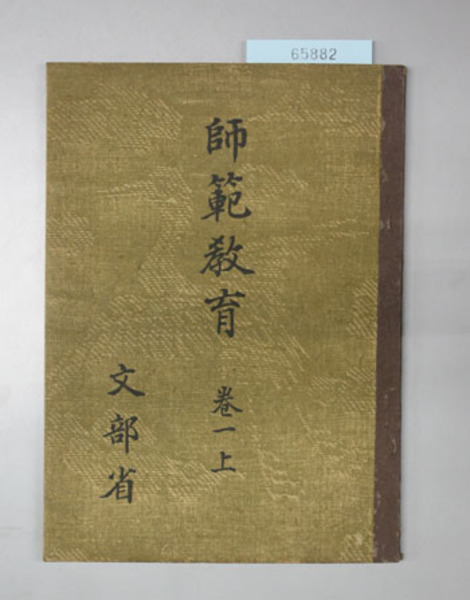 65882
師範教育
卷一上
文部省